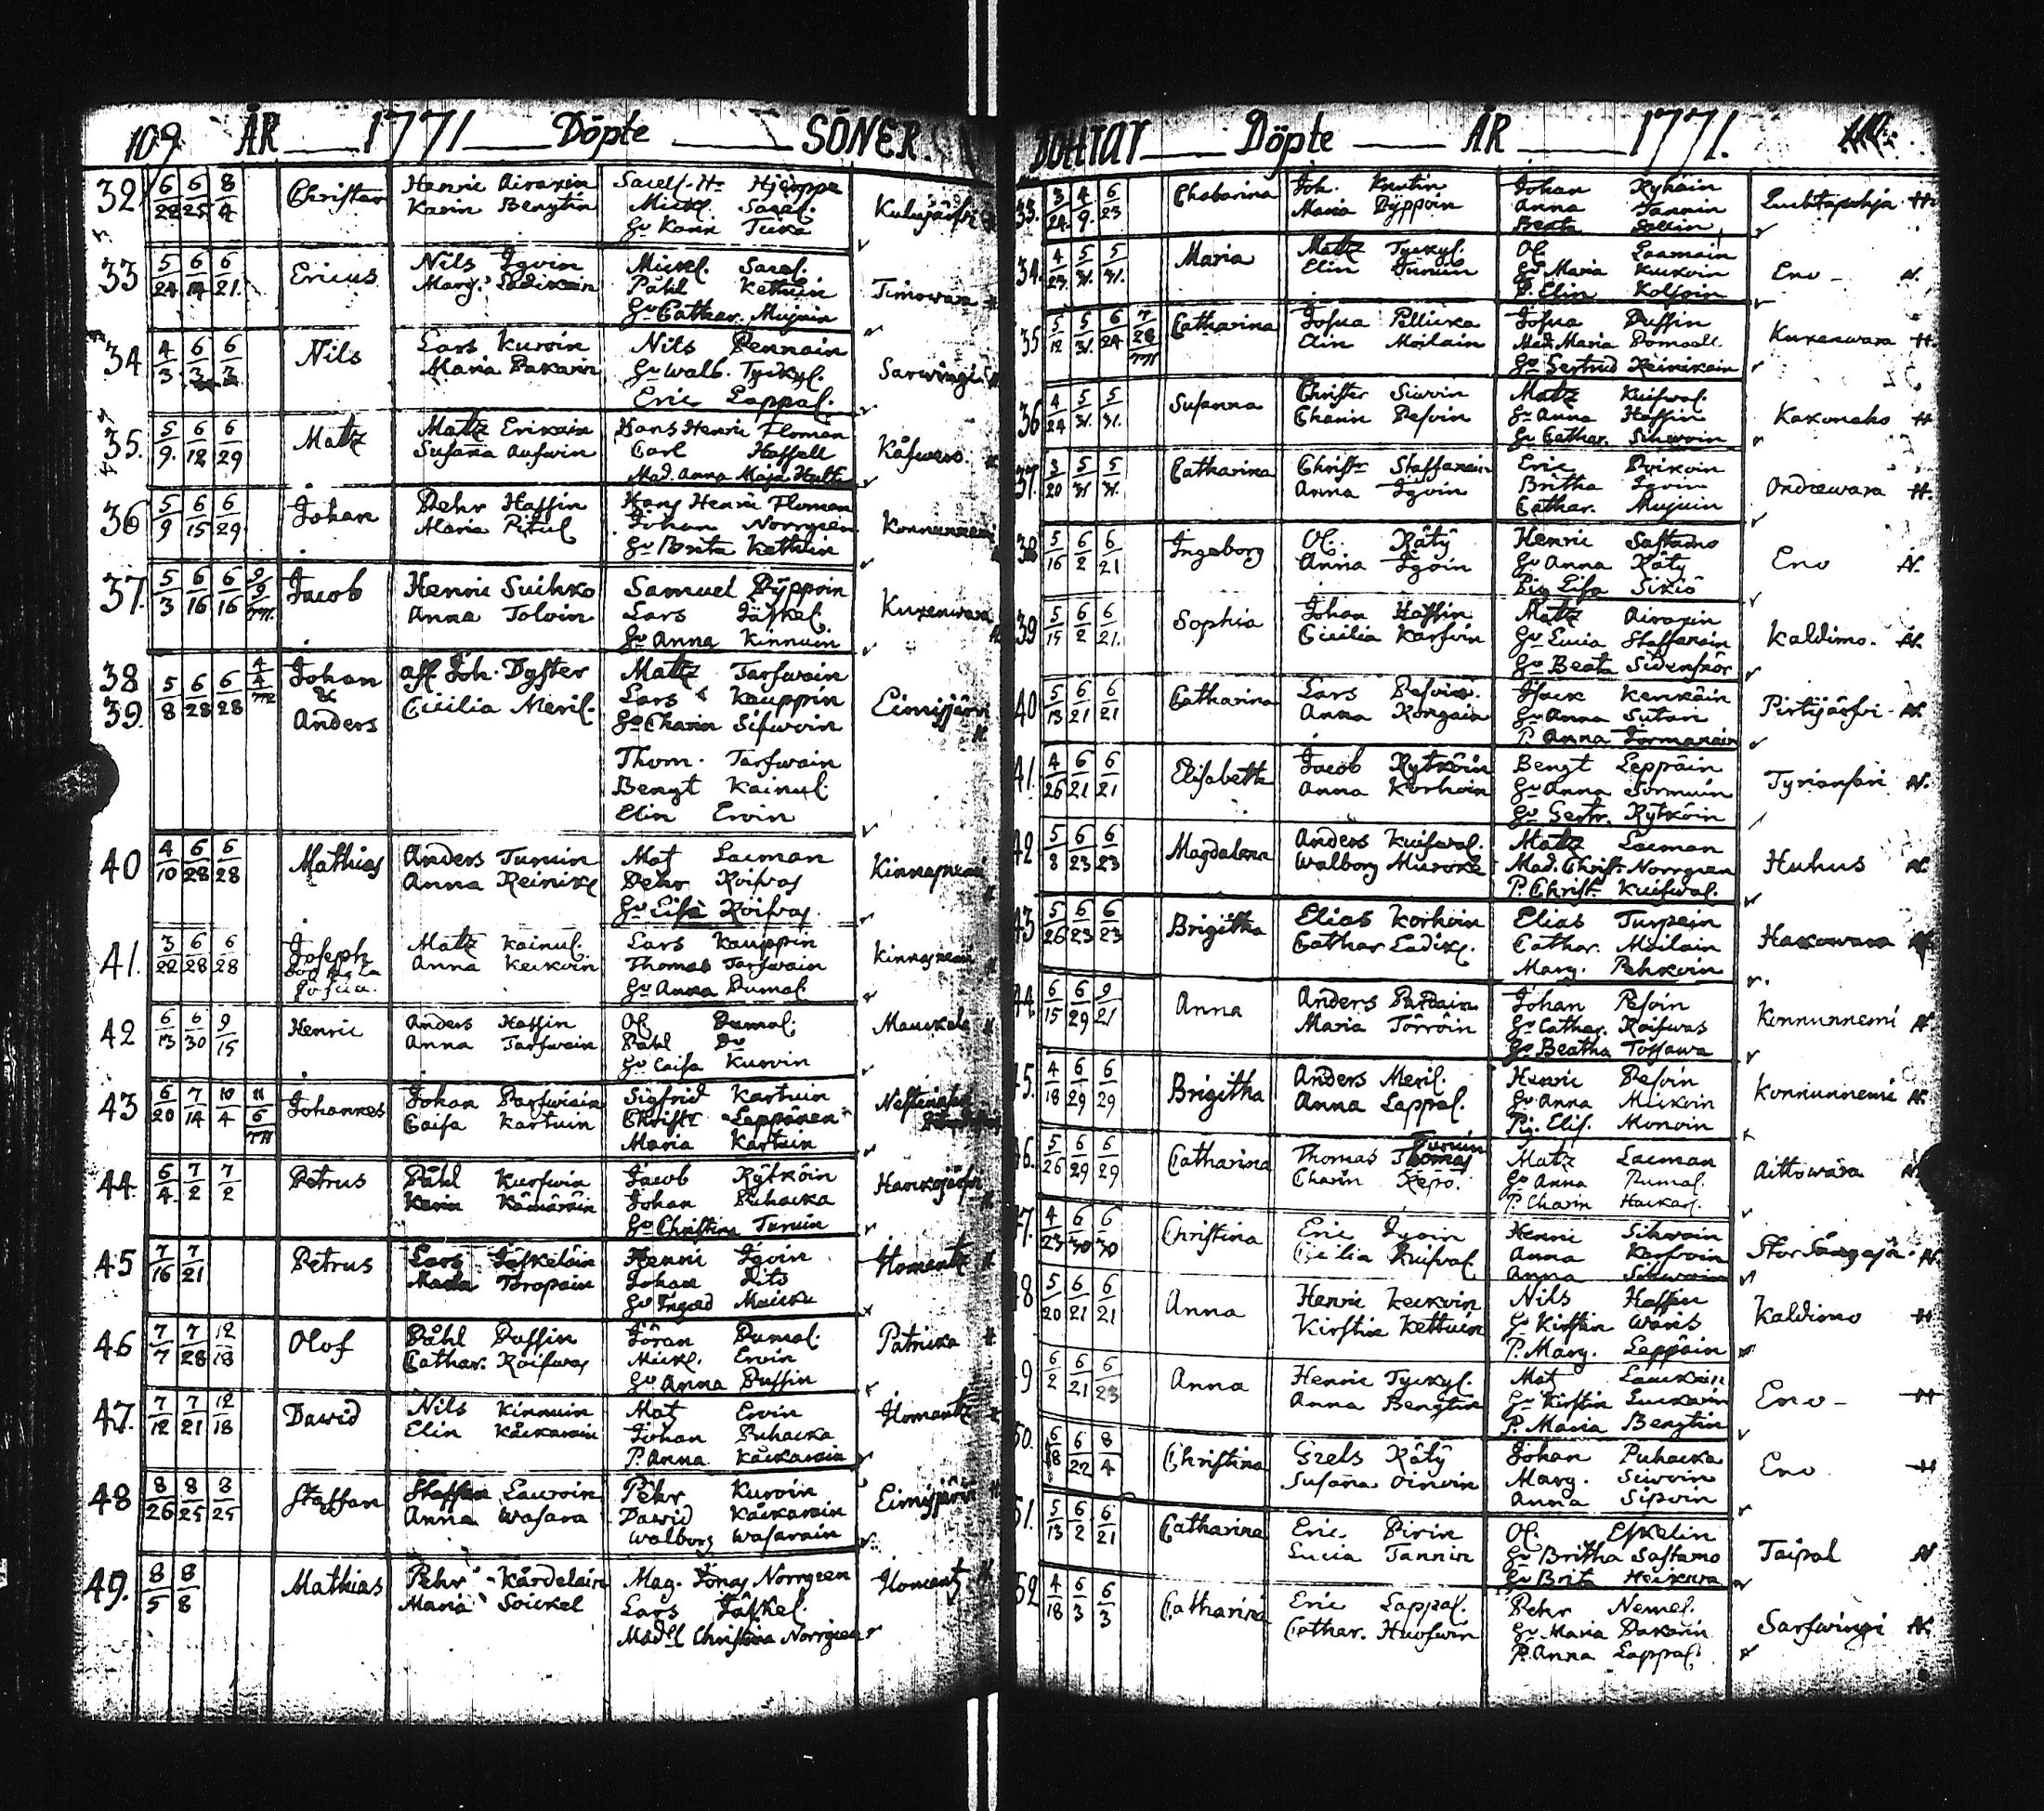 109. ÅR 1771 Döpte SÖNER.
32 6/22 6/25 8/4 Christer Henric Airaxin Karin Bengtin Hjerppe Mickl. Gv Karin Kulujärfvi
33 5/24 6/14 6/21. Ericus Nils Igoin Marg. Mickl. Påhl Kettuin Gv Cathar. Mujuin Timowara
34 4/3 6/3 6/3 Nils Lars Kuroin Maria Pakarin Nils Pennain Gv Walb. Tyckyl. Eric Lappal. Sarwingi
35. 5/9. 6/12 6/29 Matz Matz Erikain Susana Aufwin Hans Henric Floman Carl Haffell Mad. Anna Maja Hult
36 5/9 6/15 6/29 Johan Pehr Haffin Maria Pitul Hans Henric Floman Johan Norrgren Gv Brita Kettuin Konnunnemi
37. 5/3 6/16 6/16 9/9 m. Jacob Henric Suihko Anna Toloin Samuel Dÿppoin Lars Jäskel. Gv Anna Kinnuin Kuxenwara
38 39. 5/8 6/28 6/28 4/4 m Johan & Anders aff Joh. Dyster Cicilia Meril. Matz Tarfwain Lars Kauppin Gv Charin Sifwoin
Thom. Tarfwain
Bengt Kainul.
Elin Ervin
Eimisjärvi
40 4/10 6/28 6/28 Mathias Anders Turuin Anna Reinik Mat Laiman Pehr Roifvas Gv Lisa Roifvas Kinnasnemi
41. 3/22 6/28 6/28 Joseph Matz Kainul. Anna Keckoin Lars Kauppin Thomas Tarfwain Gv Anna Pumal. Kinnasnemi
42 6/13 6/30 9/15 Henric Anders Haffin Anna Tarfwain Ol. Pumal. Påhl Do Gv Caisa Kuroin Mauckala
43 6/20 7/14 10/4 11/6 m Johannes Johan Parfwiain Caisa Kartuin Sigfrid Kartuin Christr Leppänen Maria Kartuin
44. 6/4. 7/2 7/2 Petrus Påhl Kurfwin Karin Kämäräin Jacob Rÿtköin Johan Puhacka Gv Christina Turuin Hauckajärfvi
45 7/16 7/21 Petrus Lars Jäskeläin Maria Toropain Henric Igoin Johan Gv Ingeed Maicku Ilomantz
46 7/7 7/28 12/18 Olof Påhl Puffin Cathar. Roifwas Jöran Pumal. Mickl. Ervin Gv Anna Puffin Patricka
47. 7/12 7/21 12/18 David Nils Kinnuin Elin Kåckarain Mat Ervin Johan Puhacka P. Anna Kåckarain Ilomantz
48 8/26 8/25 8/25 Staffan Staffan Lauroin Anna Wasara Pehr Kuroin Dawid Kåckarain Walborg Wasarain Eimisjärvi
49. 8/5 8/8 Mathias Pehr Kårdelain Maria Soickel Mag. Jonas Norrgren Lars Jäskel. Madll Christina Norrgren Ilomantz
DOHTAR Döpte ÅR 1771. 110.
33. 3/24. 4/9. 6/23 Chatarina Joh. Knutin Maria Dÿppoin Johan Rÿhäin Anna Tannin Beata Sallin Luhtapohja
34. 4/23. 5/31. 5/31. Maria Matz Tyckyl. Elin Turuin Ol. Laamain Gv Maria Kuckoin P. Elin Kolfoin Eno N.
35 5/12 5/31. 6/24 7/28 m Catharina Josua Pellicka Elin Moilain Josua Puffin Mad. Maria Gv Gertrud Reinikain Kuxenwara
36 4/24 5/31. 5/31. Susanna Christer Siwoin Charin Pesoin Matz Kuifwal. Gv Anna Haffin Gv Cathar. Sihwoin Kakonaho
37. 3/20 5/31 5/31. Catharina Christr Staffanain Anna Igoin Eric Poikoin Britha Igoin Cathar. Mujuin Ondrewara
38 5/16 6/2 6/21 Ingeborg Ol. Rätÿ Anna Igoin Henric Saftamo Gv Anna Räty Pig Lisa Sikiö Eno N.
39 5/15 6/2 6/21. Sophia Johan Haffin Cicilia Karfvin Matz Airaxin Gv Lucia Staffanain Gv Beata Sidensnör Kaldimo. N.
40 5/13 6/21 6/21 Catharina Lars Pesoin. Anna Rongain Isack Kenkäin Gv Anna Sutar P. Anna Jormanain Pirtijärfvi N.
41. 4/26 6/21 6/21 Elisabeth Jacob Rytköin Anna Korhoin Bengt Leppäin Gv Anna Sormuin Gv Gertr. Rytköin N.
42 5/8 6/23 6/23 Magdalena Anders Kuifwal. Walborg Matz Laiman Mad. Christ. Norrgren P. Christ. Kuifwal. Huhus N.
43 5/26 6/23 6/23 Brigitha Elias Korhoin Cathar Ladik. Elias Turpein Cathar. Moilain Marg. Pehkoin Hakowara
44. 6/15 6/29 9/21 Anna Anders Pardain Maria Törröin Johan Pesoin Gv Cathar. Roifwas Gv Beatha Tössawa Konnunnemi N.
45. 4/18 6/29 6/29 Brigitha Anders Meril. Anna Lappal. Henric Pesoin Gv Anna Mickoin Pig. Elis. Monoin Konnunnemi N.
46. 5/26 6/29 6/29 Catharina Thomas Turuin Charin Repo. Matz Laiman Gv Anna Pumal. P. Charin Hackar. Aittowara N.
47. 4/23 6/30 6/30 Christina Eric Igoin Cicilia Kuifwal. Henric Sihwoin Anna Karfvoin Anna Sihwoin N.
48 5/20 6/21 6/21 Anna Henric Keckoin Kirstin Kettuin Nils Haffin Gv Kirstin Wares P. Marg. Leppäin Kaldimo
49 6/2 6/21 6/23 Anna Henric Tyckyl. Anna Bengtin Mat Lauckain Gv Kirstin Luckarin P. Maria Bengtin Eno
50. 6/18 6/22 8/4 Christina Grels Rätÿ Susana Oinoin Johan Puhacka Marg. Siwoin Anna Sipoin Eno
51. 5/13 6/2 6/21 Catharina Eric Pirin Lucia Tannin Ol. Eskelin Gv Britha Saftamo Gv Brita Heickura Taipal N
52 4/18 6/3 6/3 Catharina Eric Lappal. Cathar. Huofwin Pehr Nemel. Gv Maria Pakarin P. Anna Lappal. Sarfwingi N.